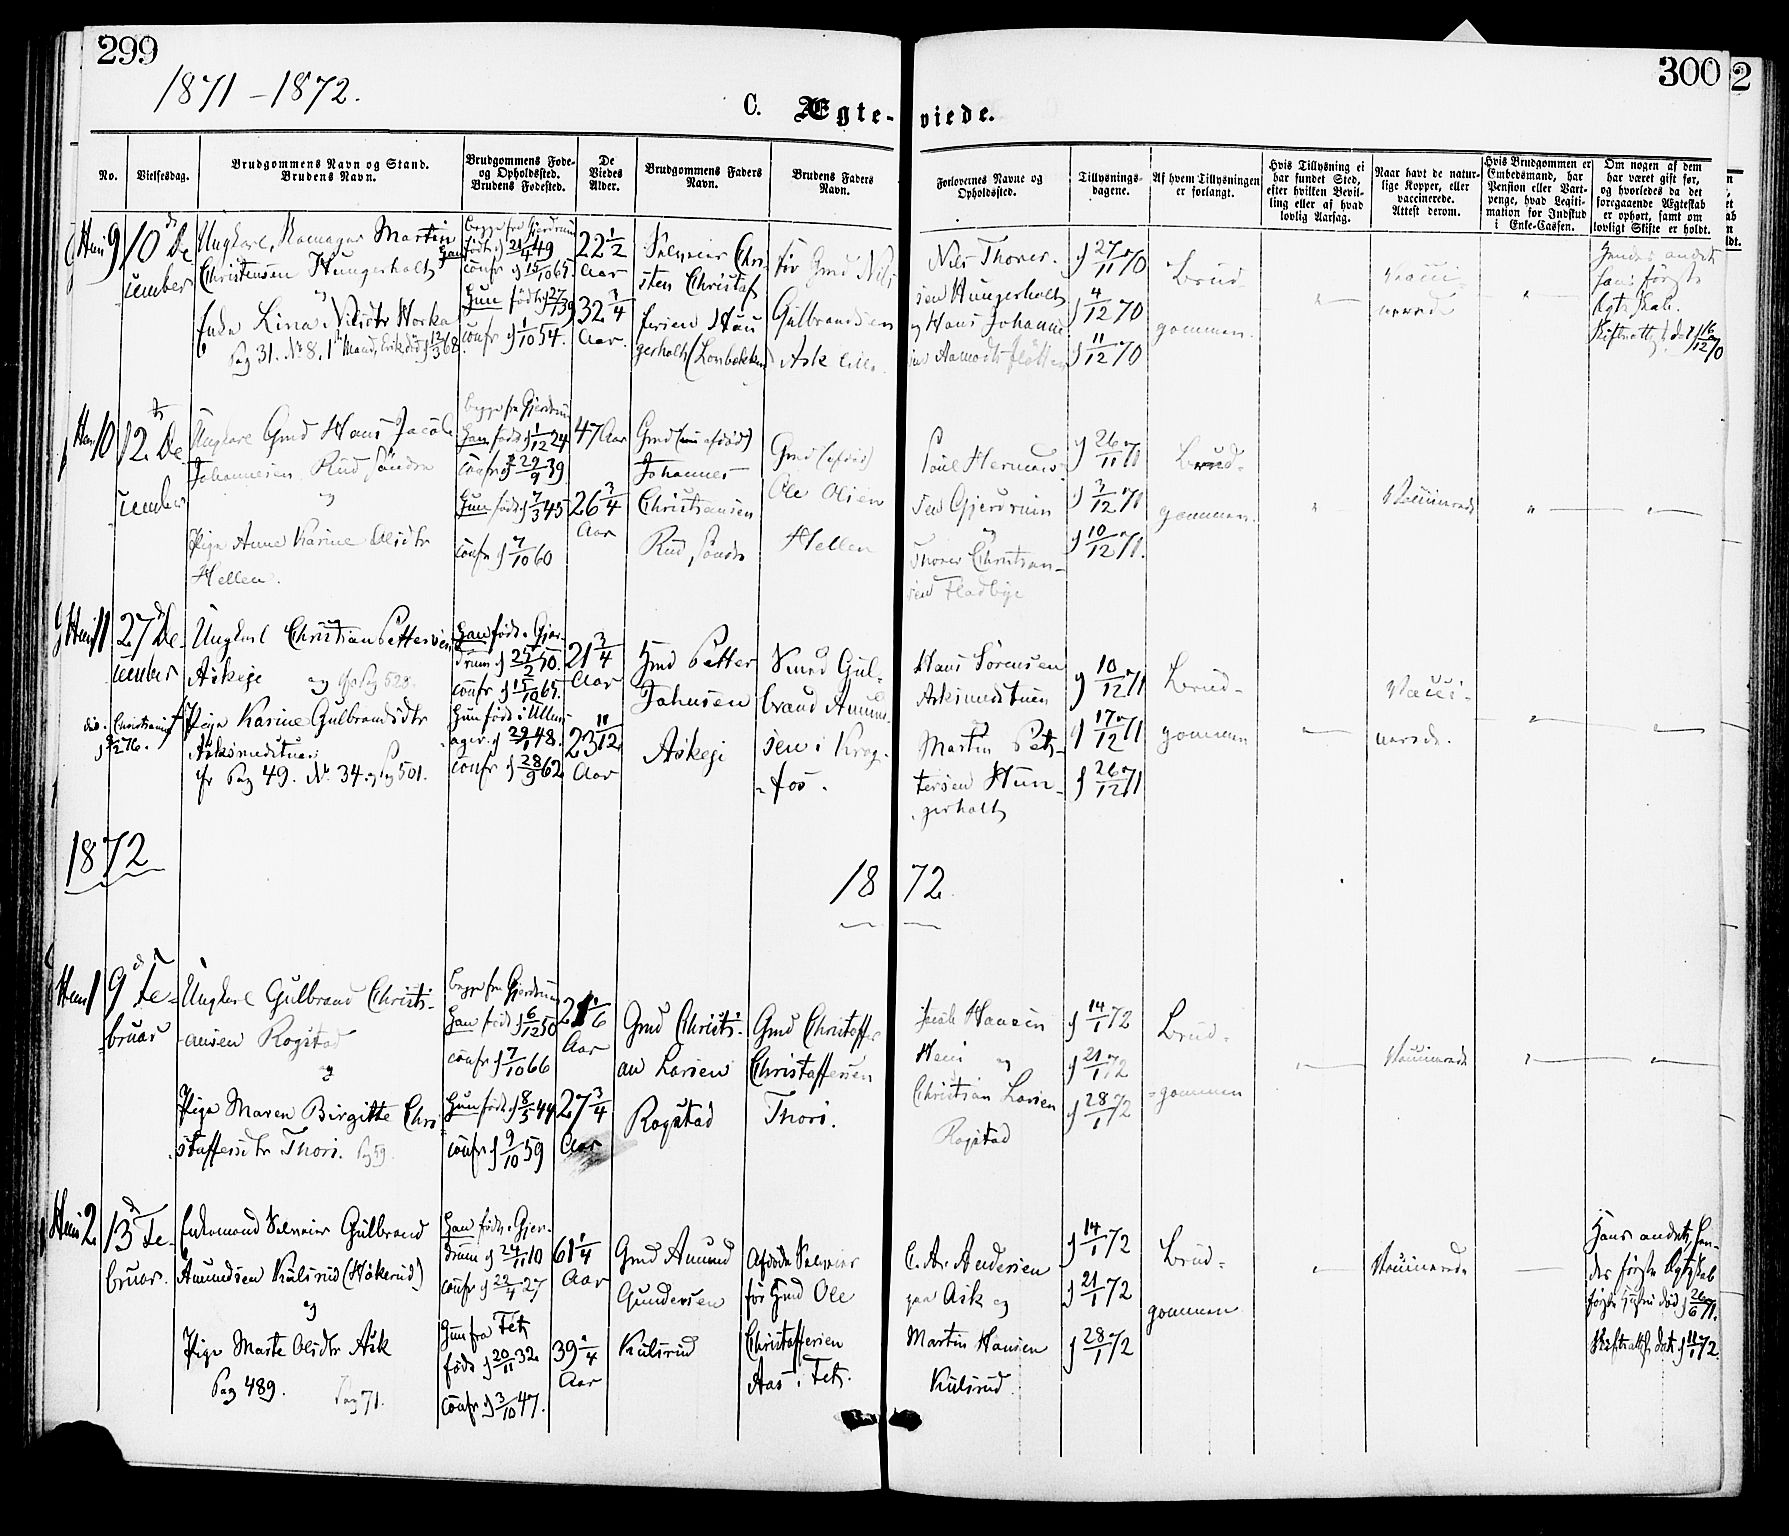 299
300
2
1871 - 1872.
C. Ægte-viede.
No.
Vielsesdag.
Brudgommens Navn og Stand.
Brudens Navn.
Brudgommens Føde-
og Opholdssted.
Brudens Fødested.
De
Viedes
Alder.
Brudgommens Faders
Navn.
Brudens Faders
Navn.
Forlovernes Navne og
Opholdssted.
Tillysnings-
dagene.
Af hvem Tillysningen
er forlangt.
Hvis Tillysning ei
har fundet Sted,
efter hvilken Bevil-
ling eller af hvad
lovlig Aarsag.
Naar havt de natur-
lige Kopper, eller
vaccinerede.
Attest derom.
Hvis Brudgommen er
Embedsmand, har
Pension eller Vart-
penge, hvad Legiti-
mation for Indskud
i Enke-Cassen.
Om nogen af dem
har været gift før,
og hvorledes da det
foregaaende Ægteskab
er ophørt, samt om
lovligt Skifte er holdt.
9
10 De
cember
Ungkarl, Martin
Christensen Hungerholt
Enke Lina Nilsdtr
Pag 31. No 8. 1 Mand, Erik død 12/3 68
Begge fra Gjerdrum
født 21/4 49
confr 15/10 65.
Hun født 27/ 39
confr 1/10 54.
22 1/2
Aar
32 3/4
Aar.
Selveier Chri-
sten Christof
fersen Hun
gerholt
Gmd Nils
Gulbrandsen
Ask
Nils Thorer-
sen Hungerholt
og Hans Johanne
27/11 70
4/12 70
11/12 70
Brud-
gommen.
Vacci-
nerede
Hendes andet
hans første
Egteskab.
16/12 70
10
12 De
cember
Ungkarl Gmd Hans Jacob
Johannesen Rud søndre
og
Pige Anne Karine Olsdtr
Hellen.
Begge fra Gjerdrum
Han født 1/12 24
confr 29/9 39
Hun født 7/3 45
confr 7/10 60
47 Aar
26 3/4
Aar
Gmd (nu afdød)
Johannes
Christiansen
Rud søndre
Gmd (afdød)
Ole Olsen
Hellen
Poul Herman-
sen Gjerdrum
og
Thorer Christian-
sen Fladbye
26/11 71
3/12 71
10/12 71.
Brud-
gommen.
Vaccinerede
11
27 De
cember
Ungkarl Christian Pettersen
Askeje og Pag 528.
Pige Karine Gulbrandsdtr
Asksmedstuen
fr Pag 49. No 34. Pag 501.
Christiania
Han født i Gjer-
drum 25/2 50.
confr 15/10 65.
Hun født i Ullens-
ager 29/1 48.
confr 28/9 62
21 3/4
Aar
23 11/12
Aar
Gmd Petter
Johnsen
Askeje
Smed Gul-
brand Amund-
sen i Krog-
fos.
Hans Sørensen
Asksmedstuen
Martin Pet-
tersen Hun-
gerholt
10/12 71
17/12 71
26/12 71
Brud-
gommen
Vacci-
nerede.
1872
18 72.
1
9 Fe-
bruar
Ungkarl Gulbrand Christi-
ansen Rogstad
og
Pige Maren Birgitte Chri-
stoffersdtr Thori. Pag 59.
Begge fra Gjerdrum
Han født 6/12 50
confr 7/10 66
Hun født 8/5 44
confr 9/10 59
21 1/6
Aar
27 3/4
Aar
Gmd Christi-
an Larsen
Rogstad
Gmd Christoffer
Christoffersen
Thori.
Jacob Hansen
Heni og
Christian Larsen
Rogstad
14/1 72
21/1 72
28/1 72
Brud-
gommen
Vaccinerede
2
13 Fe-
bruar.
Enkemand Selveier Gulbrand
Amundsen Kulsrud (Høkerud)
og
Pige Marte Olsdtr Ask
Pag 489. Pag 71.
Han født i Gjer-
drum 24/11 10
confr 22/4 27
Hun fra Fet
født 20/11 32
confr 3/10 47.
61 1/4
Aar
39 1/4
Aar
Gmd Amund
Gundersen
Kulsrud
Afdøde Selveier
før Gmd Ole
Christoffersen
Aas i Fet.
C. Andersen
paa Ask og
Martin Hansen
Kulsrud.
14/1 72
21/1 72
28/1 72
Brud-
gommen
Vaccinerede
Hans andet, hen-
des første Egteskab
første Hustru død 26/6 71.
Skifteattest dat. 11/1 72.